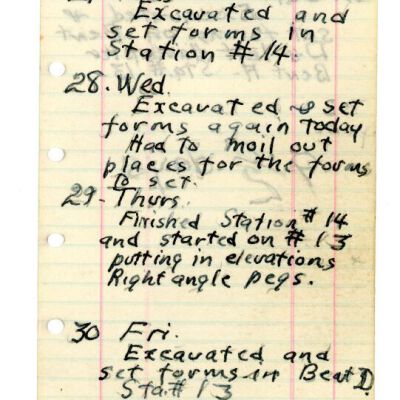 Excavated and
set forms in
Station #14.
28. Wed.
Excavated & set
forms again today
Had to moil out
places for the forms
to set.
29 - Thurs.
Finished Station #14
and started on #13
putting in elevations
Right angle pegs.
30 Fri.
Excavated and
set forms in Beat D.
Sta# 13